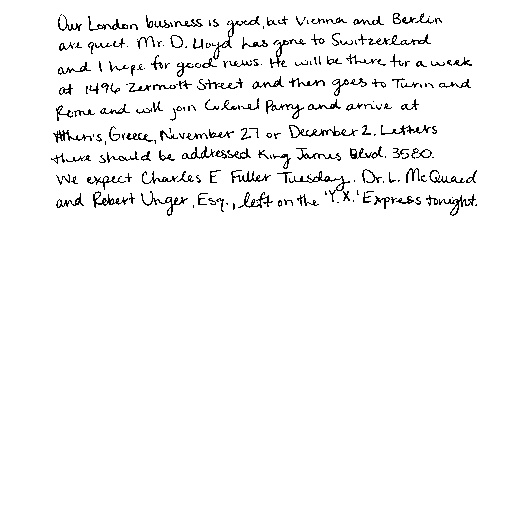 Our London business is good, but Vienna and Berlin
are quiet. Mr. D. Lloyd has gone to Switzerland
and I hope for good news. He will be there for a week
at 1496 Zermott Street and then goes to Turin and
Rome and will join Colonel Parry and arrive at
Athens, Greece, November 27 or December 2. Letters
there should be addressed King James Blvd. 3580.
We expect Charles E Fuller Tuesday. Dr. L. McQuaid
and Robert Unger, Esq., left on the 'Y.X.' Express tonight.